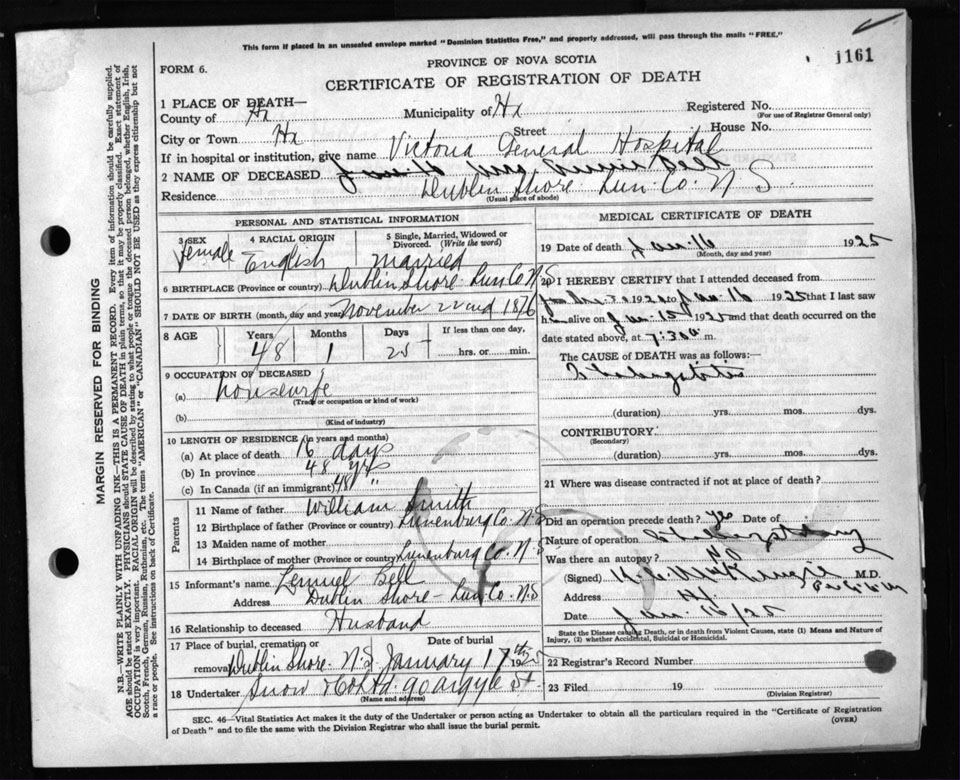 This form if placed in an unsealed envelope marked "Dominion Statistics Free," and properly addressed, will pass through the mails "FREE."
1161
PROVINCE OF NOVA SCOTIA
FORM 6.
CERTIFICATE OF REGISTRATION OF DEATH
1 PLACE OF DEATH—
County of Hx Municipality of Hx Registered No.
(For use of Registrar General only)
City or Town Hx Street House No.
If in hospital or institution, give name Victoria General Hospital
2 NAME OF DECEASED Mrs Bell
Residence Dublin Shore Lun. Co. N S.
(Usual place of abode)
PERSONAL AND STATISTICAL INFORMATION
3 SEX 4 RACIAL ORIGIN 5 Single, Married, Widowed or Divorced. (Write the word)
Female English Married
6 BIRTHPLACE (Province or country) Dublin Shore Lun. Co N S
7 DATE OF BIRTH (month, day and year) November 22nd 1876
8 AGE Years Months Days If less than one day,
48 1 25 hrs. or min.
9 OCCUPATION OF DECEASED
(a) housewife
(Trade or occupation or kind of work)
(b)
(Kind of industry)
10 LENGTH OF RESIDENCE (in years and months)
(a) At place of death 16 days
(b) In province 48 yrs
(c) In Canada (if an immigrant) 48 "
Parents
11 Name of father William Smith
12 Birthplace of father (Province or country) Lunenburg Co. N S
13 Maiden name of mother
14 Birthplace of mother (Province or country) Lunenburg Co. N S
15 Informant's name Lemuel Bell
Address Dublin Shore - Lun. Co. N S
16 Relationship to deceased Husband
17 Place of burial, cremation or removal Date of burial
Dublin Shore N. S. January 17th 1925
18 Undertaker Snow & Co Ltd. 90 Argyle St.
(Name and address)
MEDICAL CERTIFICATE OF DEATH
19 Date of death Jan. 16 1925
(Month, day and year)
20 I HEREBY CERTIFY that I attended deceased from
192 to Jan. 16 1925 that I last saw
h alive on Jan 15 1925 and that death occurred on the
date stated above, at 7.30 a m.
The CAUSE OF DEATH was as follows:
(duration) yrs. mos. dys.
CONTRIBUTORY
(Secondary)
(duration) yrs. mos. dys.
21 Where was disease contracted if not at place of death?
Did an operation precede death? yes Date of
Nature of operation
Was there an autopsy? No
(Signed) M.D.
Address Hx.
Date Jan 16/25
State the Disease causing Death, or in death from Violent Causes, state (1) Means and Nature of Injury, (2) whether Accidental, Suicidal or Homicidal.
22 Registrar's Record Number
23 Filed 19
(Division Registrar)
SEC. 46—Vital Statistics Act makes it the duty of the Undertaker or person acting as Undertaker to obtain all the particulars required in the "Certificate of Registration
of Death" and to file the same with the Division Registrar who shall issue the burial permit.
(OVER)
MARGIN RESERVED FOR BINDING
N.B.—WRITE PLAINLY WITH UNFADING INK—THIS IS A PERMANENT RECORD. Every item of information should be carefully supplied.
AGE should be stated EXACTLY. PHYSICIANS should STATE CAUSE OF DEATH in plain terms, so that it may be properly classified. Exact statement of
OCCUPATION is very important. RACIAL ORIGIN will be described by stating to what people or tongue the deceased person belonged, whether English, Irish,
Scotch, French, German, Russian, Ruthenian, etc. The terms "AMERICAN" or "CANADIAN" SHOULD NOT BE USED as they express citizenship but not
a race or people. See instructions on back of Certificate.